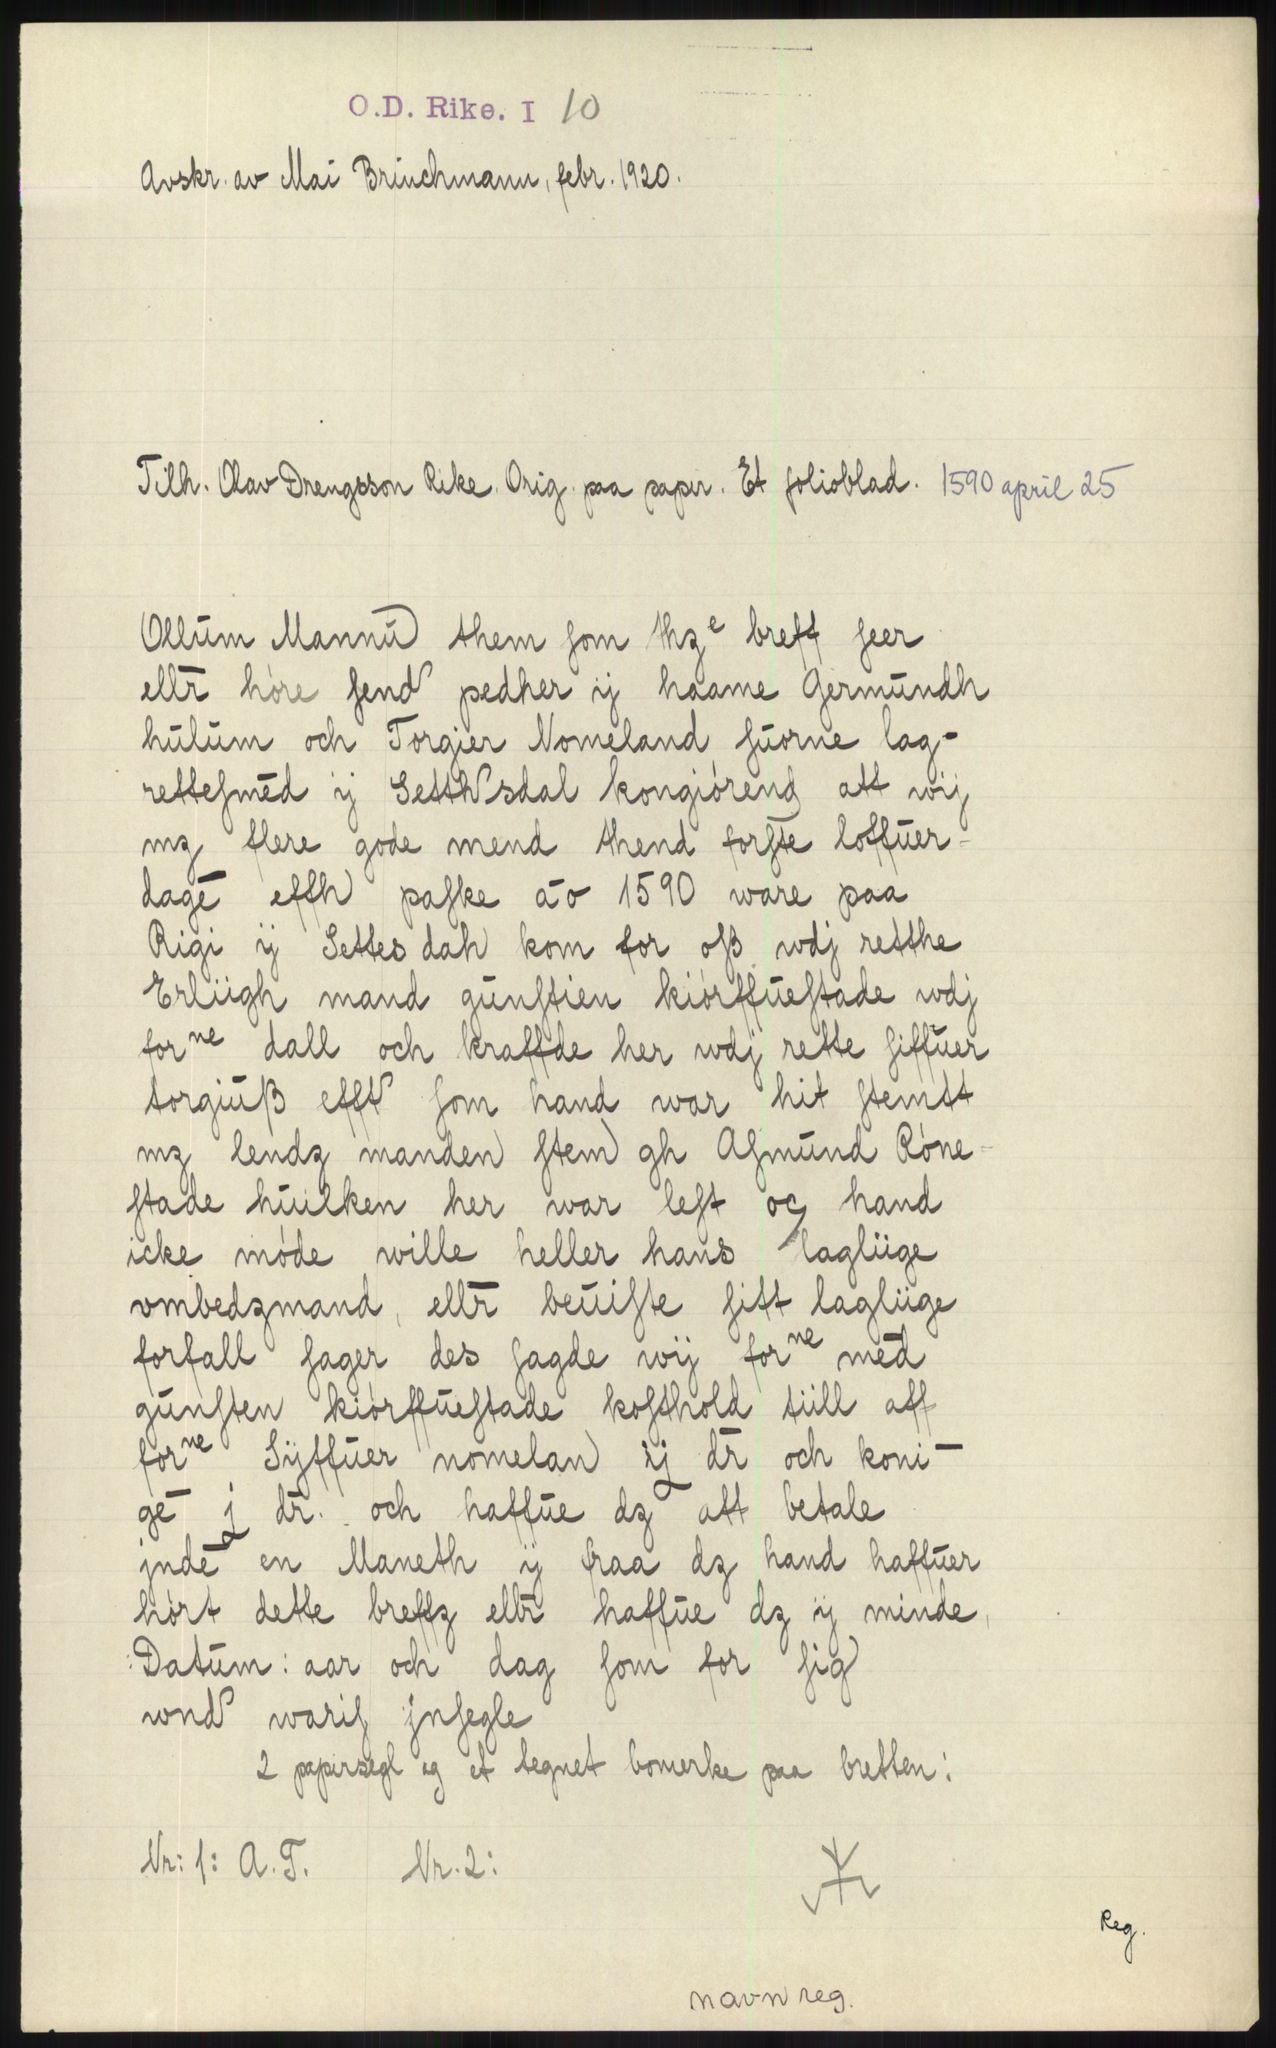 O.D. Rike. I 10
Avskr. av Mai Brinchmann, febr. 1920.
Tilh. Olav Drengsson Rike. Orig. paa papir. Et folioblad. 1590 april 25
Ollum Mannū them som thzᵉ breff seer
ellr̄ høre send pedher ij haame Germundh
hulum och Torgier Nomeland suorne lag-
rettesmēd ij Setthsdal kongiørend att wij
mz flere gode mend thend forste loffuer-
dagē effth paske āo 1590 ware paa
Rigi ij Settesdah kom for oss wdj retthe
Erliigh mand gunstien kiørffuestade wdj
forⁿᵉ dall och kraffde her wdj rette siffuer
torgiuß efft som hand war hit stemtt
mz lendz manden stem gh Asmund Røne-
stade huilken her war lest og hand
icke møde wille heller hans lagliige
ombedzmand, ellr̄ beuiste sitt lagliige
forfall sager des sagde wij forⁿᵉ mēd
gunsten kiørffuestade kosthold tiill aff
forⁿᵉ Sÿffuer nomelan ij dr̄ och koni-
gē j dr̄. och haffue dz att betale
jndē en Maneth ij fraa dz hand haffuer
hørt dette breffz ellr̄ haffue dz ij minde,
:Datum: aar och dag som for sig
wnd waris jnsegle
2 papirsegl og et tegnet bomerke paa bretten:
Nr: 1: A.T. Nr. 2:
Reg.
navnreg.